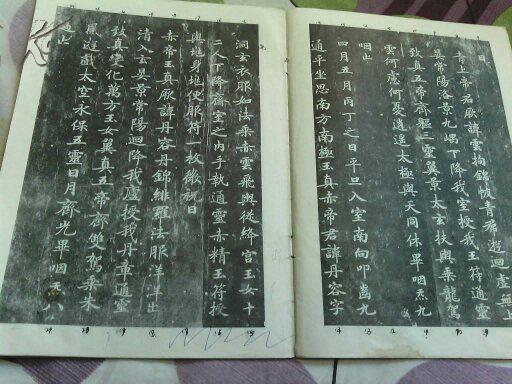 曰
青上帝君厥諱雲拘錦帔青裙遊迴虛無上
晏常陽洛景九嵎下降我室授我玉符通靈
致真五帝齊軀三靈翼景太玄扶轝乘龍駕
雲何慮何憂逍遙太極與天同休畢咽炁九
咽止
四月五月丙丁之日平旦入室南向叩齒九
通平坐思南方南極玉真赤帝君諱丹容字
洞玄衣服如法乘赤雲飛轝從絳宮玉女十
二人下降齋室之內手執通靈赤精玉符授
與地身地便服符一枚微祝曰
赤帝玉真厥諱丹容丹錦緋羅法服洋洋出
清入玄晏景常陽迴降我廬授我丹章通靈
致真變化萬方玉女翼真五帝齊雙駕乘朱
鳳遊戲太空永保五靈日月齊光畢咽炁八
過止